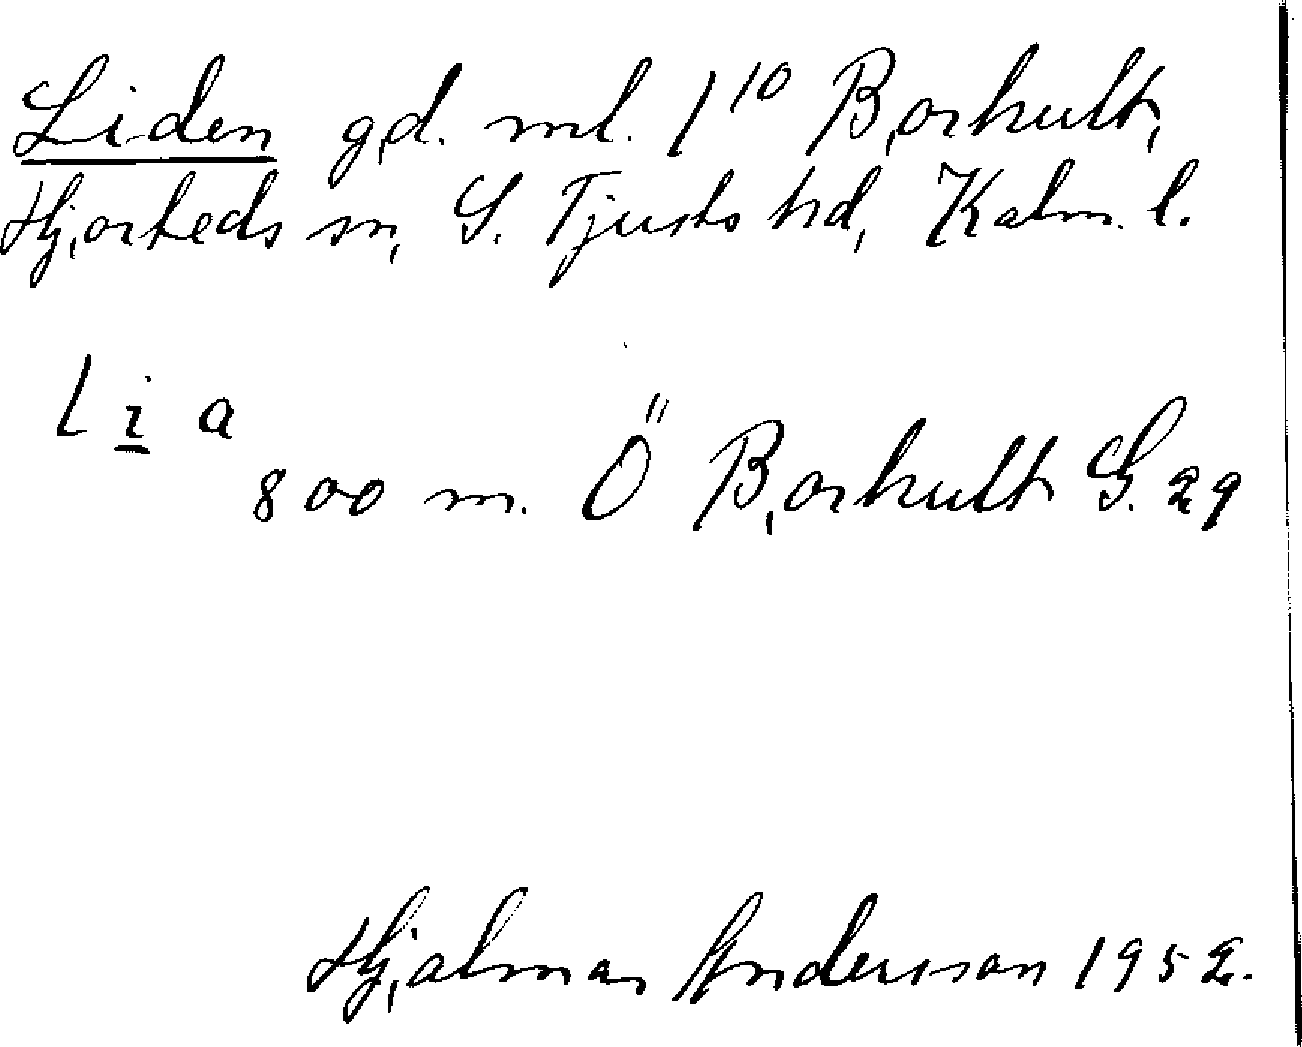 Liden gd. ml. 1¹⁰ Borhult,
Hjorteds sn, S. Tjusts hd, Kalm. l.
l i a
800 m. Ö Borhult G. 29
Hjalmar Andersson 1952.